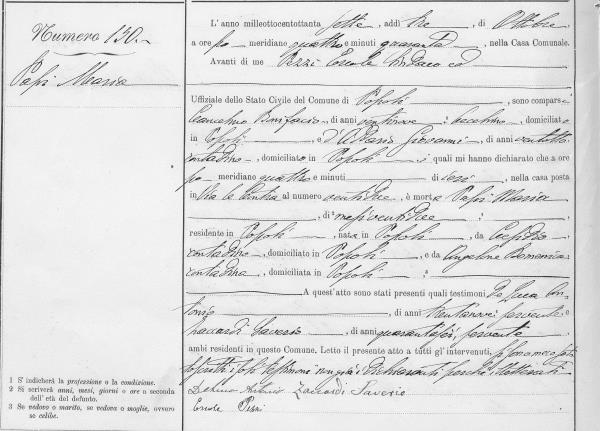 Numero 130.
Papi Maria
L'anno milleottocentottanta sette, addì tre, di Ottobre
a ore po meridiane quattro e minuti quaranta, nella Casa Comunale.
Avanti di me Pezzi Ercole Sindaco ed
Uffiziale dello Stato Civile del Comune di Popoli, sono comparsi
Bonifacio, di anni, domiciliato
in Popoli e Giovanni, di anni ventotto
contadino, domiciliato in Popoli, i quali mi hanno dichiarato che a ore
po meridiane quattro e minuti di ieri, nella casa posta
in Via al numero ventidue, è morta Papi Maria
, di mesi ventidue,
residente in Popoli, nata in Popoli, da
contadino, domiciliato in Popoli, e da Angelina Domenica
contadina, domiciliata in Popoli,
A quest'atto sono stati presenti quali testimoni De Luca An-
tonio, di anni trentanove, servente e
Zaccardi Saverio, di anni quarantasei, servente
ambi residenti in questo Comune. Letto il presente atto a tutti gl' intervenuti,
i dichiaranti perché illetterati
De Luca Antonio Zaccardi Saverio
Ercole Pezzi
1 S' indicherà la professione o la condizione.
2 Si scriverà anni, mesi, giorni o ore a seconda
dell'età del defunto.
3 Se vedovo o marito, se vedova o moglie, ovvero
se celibe.